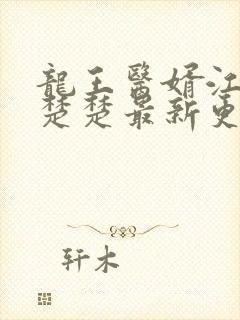 龍王醫婿江
楚楚最新更
轩木